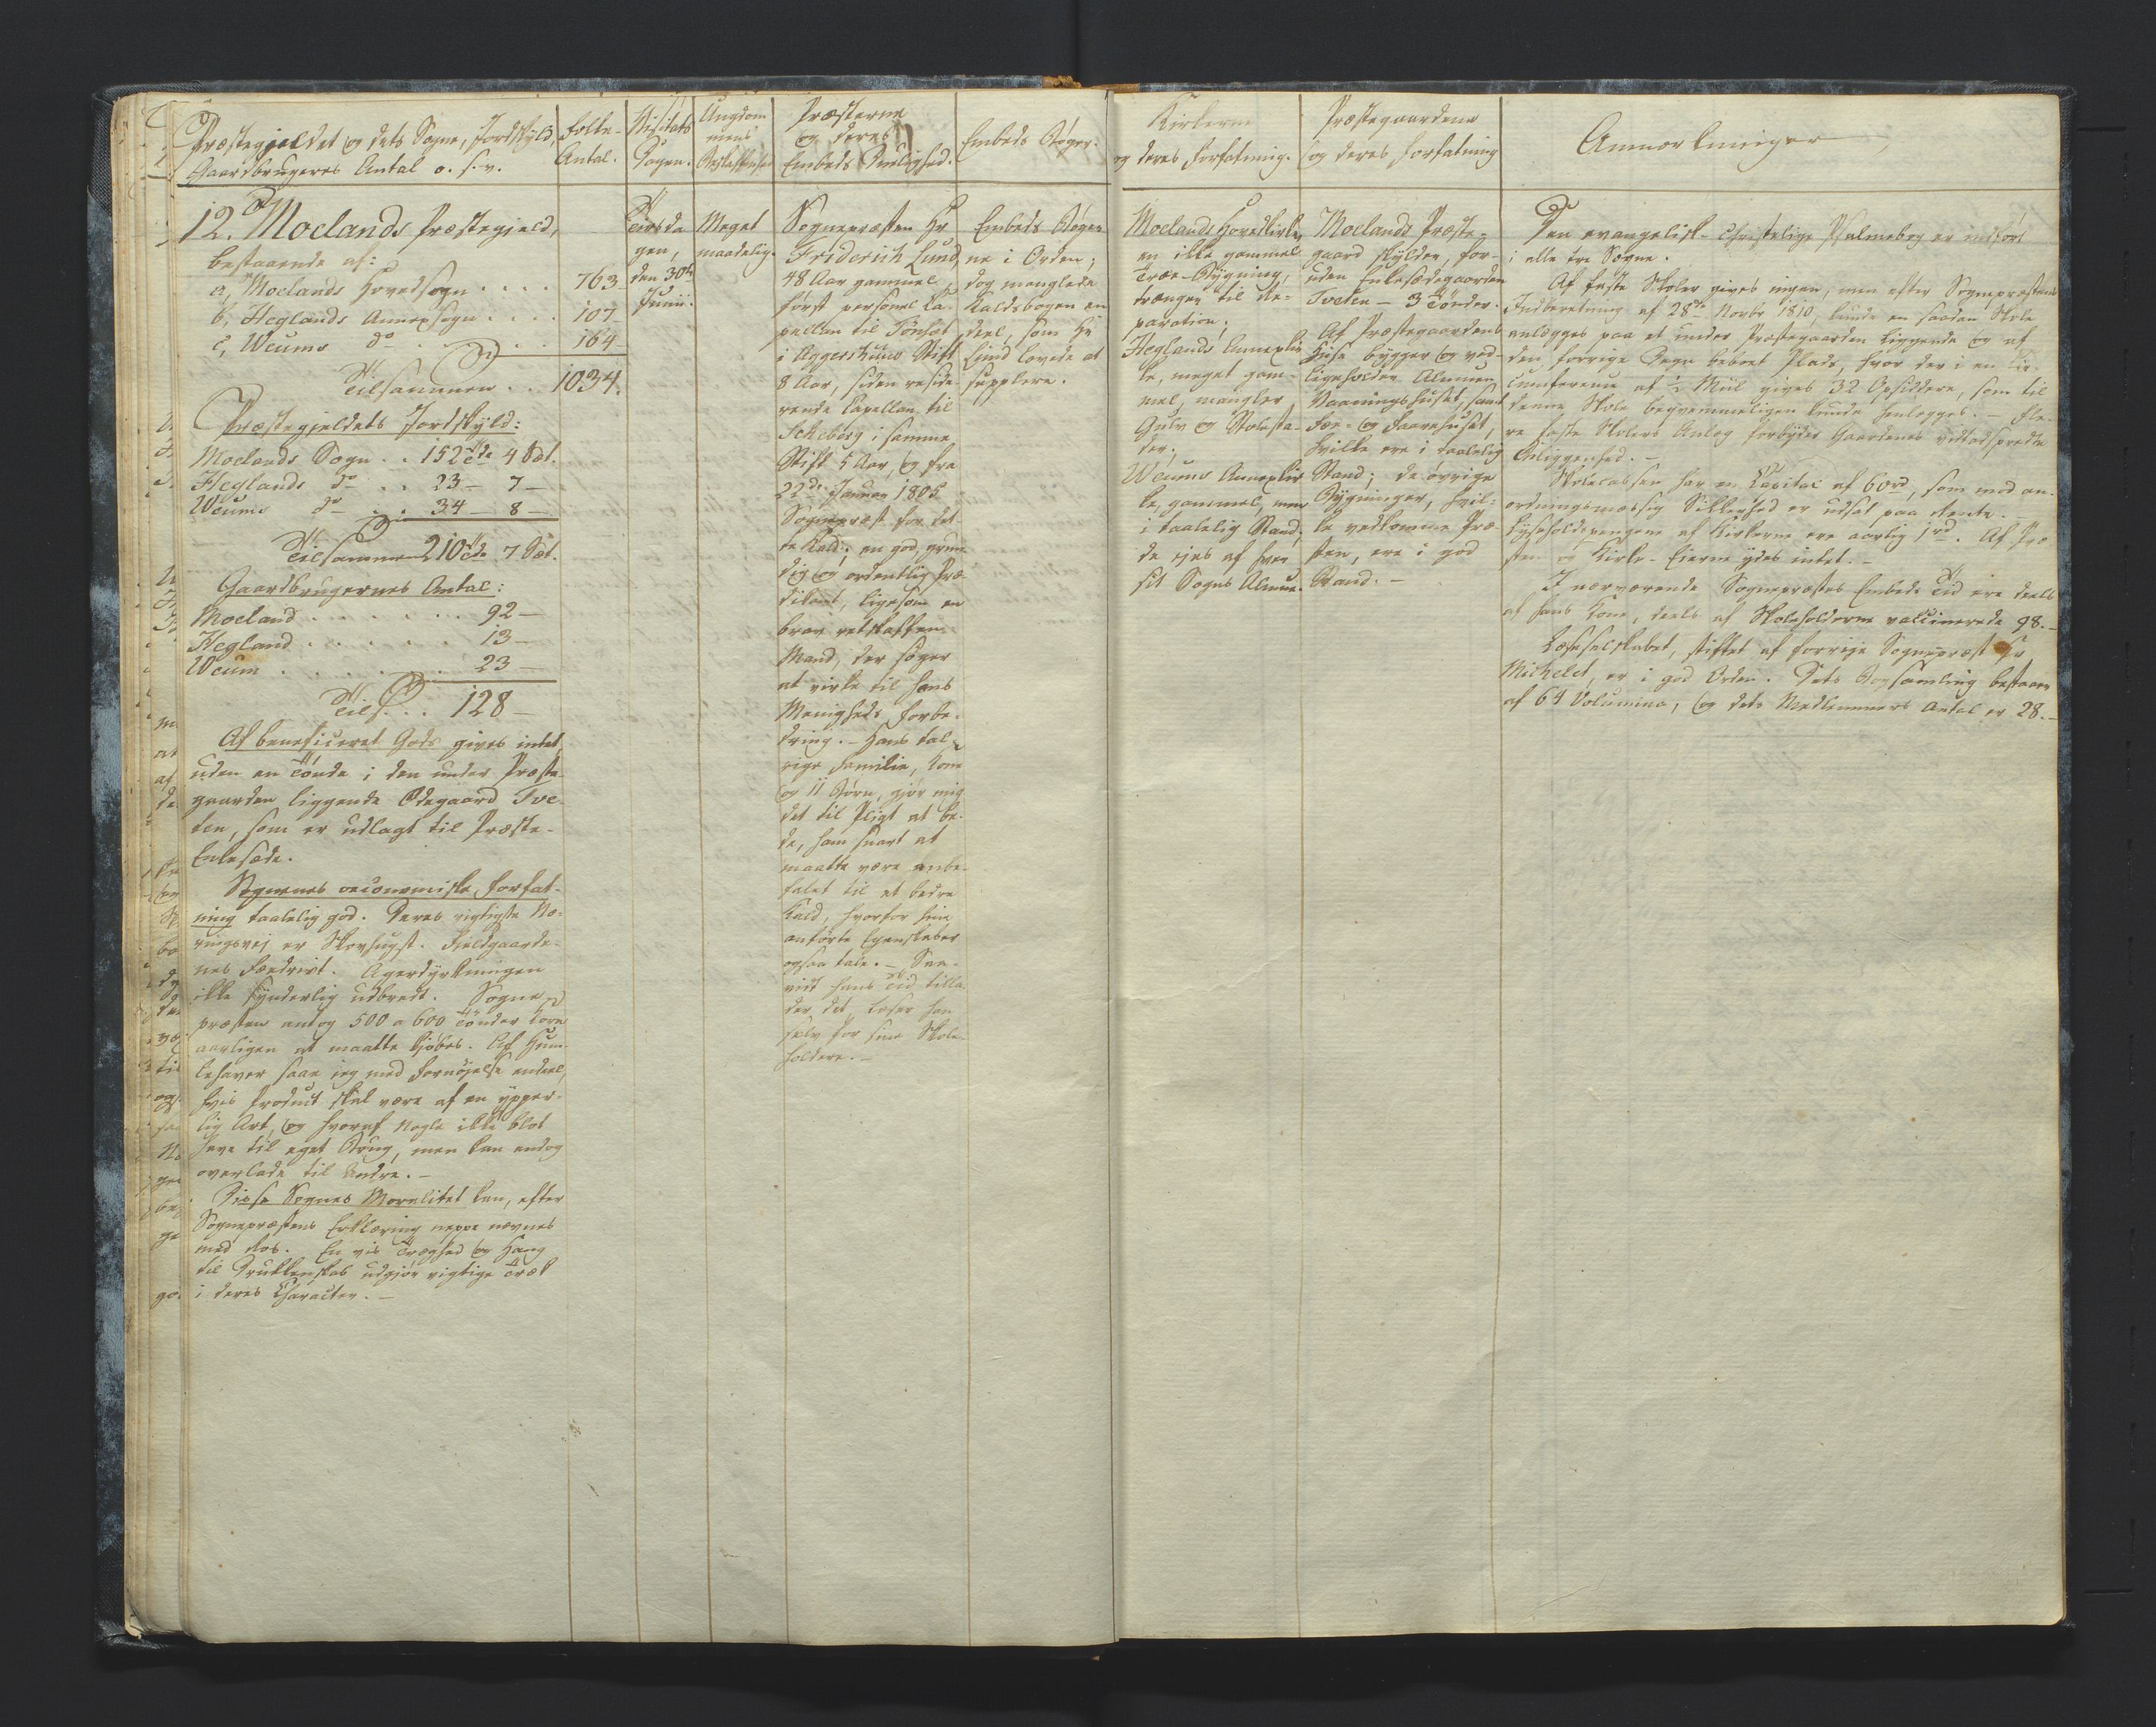 Præstegjeldet og dets Sogne, Jordskyld,
Gaardbrugeres Antal o. s. v.
Folke-
Antal.
Visitats
Dagen.
Ungdom
mens
Beskaffenhed
Præsterne
og deres
Embeds Duelighed.
Embeds Bøger.
Kirkerne
og deres Forfatning.
Præstegaardene
og deres Forfatning
Anmærkninger
12. Moelands Præstegjeld,
bestaaende af:
a, Moelands Hovedsogn . . . . 763
b, Heglands Annexsogn . . . . 107
c, Weums do . . . . 164
Tilsammen . . 1034.
Præstegjeldets Jordskyld:
Moelands Sogn . . 152 Tde 4 Sæt.
Heglands do . . 23 — 7 —
Weums do . . 34 — 8 —
Tilsammen 210 Tde 7 Sæt.
Gaardbrugernes Antal:
Moeland . . . . . . . 92 —
Hegland . . . . . . 13 —
Weum . . . . . . . 23 —
Tils. . . 128 —
Af beneficeret Gods gives intet,
uden en Tønde i den under Præste-
gaarden liggende Ødegaard Tve-
ten, som er udlagt til Præste-
Enkesæde.
Sognenes oeconomiske Forfat-
ning taalelig god. Deres vigtigste Næ-
ringsvej er Skovhugst. Fieldgaarde-
nes Fædrivt. Agerdyrkningen
ikke synderlig udbredt. Sogne-
præsten antog 500 a 600 Tønder Korn
aarligen at maatte kjøbes. Af Hum-
lehaver saae jeg med Fornøjelse endeel,
hvis Product skal være af en ypper-
lig Art, og hvoraf Nogle ikke blot
have til eget Brug, men kan endog
overlade til Andre. —
Disse Sognes Moralitet kan, efter
Sognepræstens Erklæring neppe nævnes
med Roes. En vis Træghed og Hang
til Drukkenskab udgjør vigtige Træk
i deres Character. —
Tirsda
gen,
den 30te
Junii.
Meget
maadelig.
Sognepræsten Hr
Friderich Lund,
48 Aar gammel,
først personel Ca-
pellan til Tønset
i Aggershuus Stift
8 Aar, siden reside-
rende Capellan til
Scheberg i samme
Stift 5 Aar, og fra
22de Januar 1805
Sognepræst for det-
te Kald; en god, grun-
dig og ordentlig Præ-
dikant, ligesom en
brav retskaffen
Mand, der søger
at virke til hans
Menigheds Forbe-
dring. — Hans tal-
rige Familie, Kone
og 11 Børn, gjør mig
det til Pligt at be-
de, ham snart at
maatte være anbe-
falet til et bedre
Kald, hvorfor hine
anførte Egenskaber
ogsaa tale. — Saa-
vidt hans Tid tilla-
der det, læser han
selv for sine Skole-
holdere. —
Embeds Bøger-
ne i Orden;
dog manglede
Kaldsbogen en
deel, som Hr
Lund lovede at
supplere.
Moelands Hovedkirke,
en ikke gammel
Træe-Bygning,
trænger til Re-
paration;
Heglands Annexkir-
ke, meget gam-
mel, mangler
Gulv og Stolesta-
der;
Weums Annexkir-
ke, gammel, men
i taalelig Stand;
de ejes af hver
sit Sogns Almue.
Moelands Præste-
gaard skylder, for-
uden Enkesædegaarden
Tveten — 3 Tønder.
Af Præstegaardens
Huse bygger og ved-
ligeholder Almuen
Vaaningshuset, samt
Fæe- og Faarehuset,
hvilke ere i taalelig
Stand; de øvrige
Bygninger, hvil-
ke vedkomme Præ-
sten, ere i god
Stand. —
Den evangelisk-christelige Psalmebog er indført
i alle tre Sogne.
Af faste Skoler gives ingen, men efter Sognepræstens
Indberetning af 28de Novbr 1810, kunde en saadan Skole
anlægges paa et under Præstegaarden liggende og af
den forrige Degn beboet Plads, hvor der i en Cir-
cumference af ½ Miil gives 32 Opsiddere, som til
denne Skole beqvemmeligen kunde henlægges. — Fle-
re faste Skolers Anlæg forbyder Gaardenes vidtadspredte
Beliggenhed. —
Skolecassen har en Capital af 60rd, som mod an-
ordningsmæssig Sikkerhed er udsat paa Rente. —
Lyseholdspengene af Kirkerne ere aarlig 1rd. Af Præ-
sten og Kirke-Eierne ydes intet. —
I nærværende Sognepræstes Embeds Tid ere deels
af hans Kone, deels af Skoleholderne vaccinerede 98. —
Læseselskabet, stiftet af forrige Sognepræst Hr
Michelet, er i god Orden. Dets Bogsamling bestaaer
af 64 Volumina, og dets Medlemmers Antal er 28. —